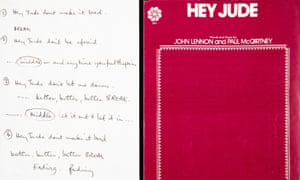 ① Hey Jude don't make it bad..
BREAK
② Hey Jude don't be afraid
.... middle — and any time you feel the pain
③ Hey Jude don't let me down..
.... better, better, better BREAK.
.... middle let it out & let it in...
④ Hey Jude don't make it bad
better, better, better BREAK
Fading - fading
HEY JUDE
Words and Music by
JOHN LENNON and PAUL McCARTNEY